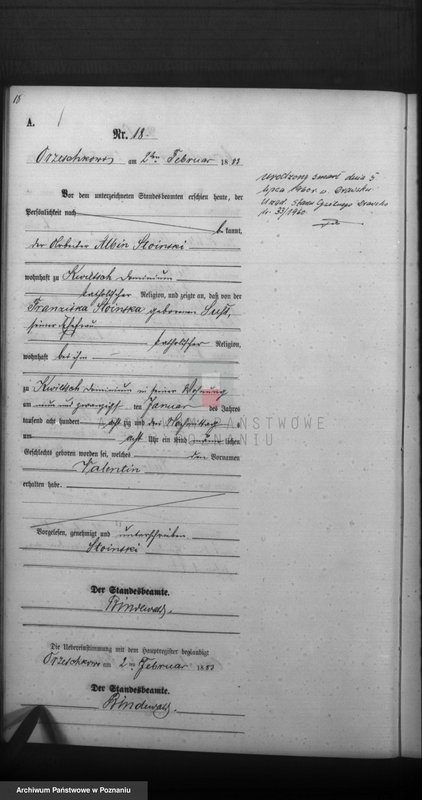 18
A.
Nr. 18.
Orzeschkowo am 2ten Februar 1883
Vor dem unterzeichneten Standesbeamten erschien heute, der
Persönlichkeit nach
be kannt,
der Arbeiter Albin Stoinski
wohnhaft zu Kwiltsch Dominium
katholischer Religion, und zeigte an, daß von der
Franziska Stoinska geborenen
seiner Ehefrau
katholischer Religion,
wohnhaft bei ihm
zu Kwiltsch Dominium in seiner Wohnung
am neun und zwanzigsten Januar des Jahres
tausend acht hundert achtzig und drei Nachmittags
um acht Uhr ein Kind männlichen
Geschlechts geboren worden sei, welches den Vornamen
Valentin
erhalten habe.
Vorgelesen, genehmigt und unterschrieben
Stoinski
Der Standesbeamte.
Bindewald.
Die Uebereinstimmung mit dem Hauptregister beglaubigt
Orzeschkowo am 2ten Februar 1883
Der Standesbeamte.
Bindewald.
urodzony zmarł dnia 5
lipca 1960r. w Drawsku
Urząd Stanu Cywilnego Drawsko
Nr. 33/1960
ARCHIWUM PAŃSTWOWE
W POZNANIU
Archiwum Państwowe w Poznaniu